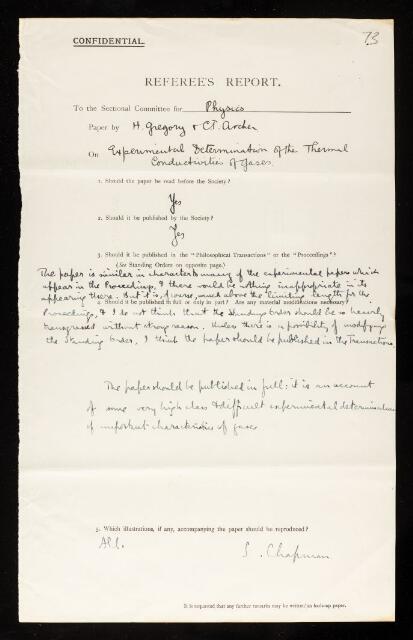 73
CONFIDENTIAL.
REFEREE'S REPORT.
To the Sectional Committee for Physics
Paper by H. Gregory & C.T. Archer
On Experimental Determination of the Thermal
Conductivities of Gases.
1. Should the paper be read before the Society?
Yes
2. Should it be published by the Society?
Yes
3. Should it be published in the "Philosophical Transactions" or the "Proceedings"?
(See Standing Orders on opposite page.)
The paper is similar in character to many of the experimental papers which
appear in the Proceedings, & there would be nothing inappropriate in its
appearing there. But it is, of course, much above the limiting length for the
4. Should it be published in full or only in part? Are any material modifications necessary?
Proceedings, & I do not think that the Standing Order should be so heavily
transgressed without strong reason. Unless there is a possibility of modifying
the Standing Order, I think the paper should be published in the Transactions.
The paper should be published in full: it is an account
of some very high class & difficult experimental determinations
of important characteristics of gases
5. Which illustrations, if any, accompanying the paper should be reproduced?
All.
S. Chapman
It is requested that any further remarks may be written on foolscap paper.